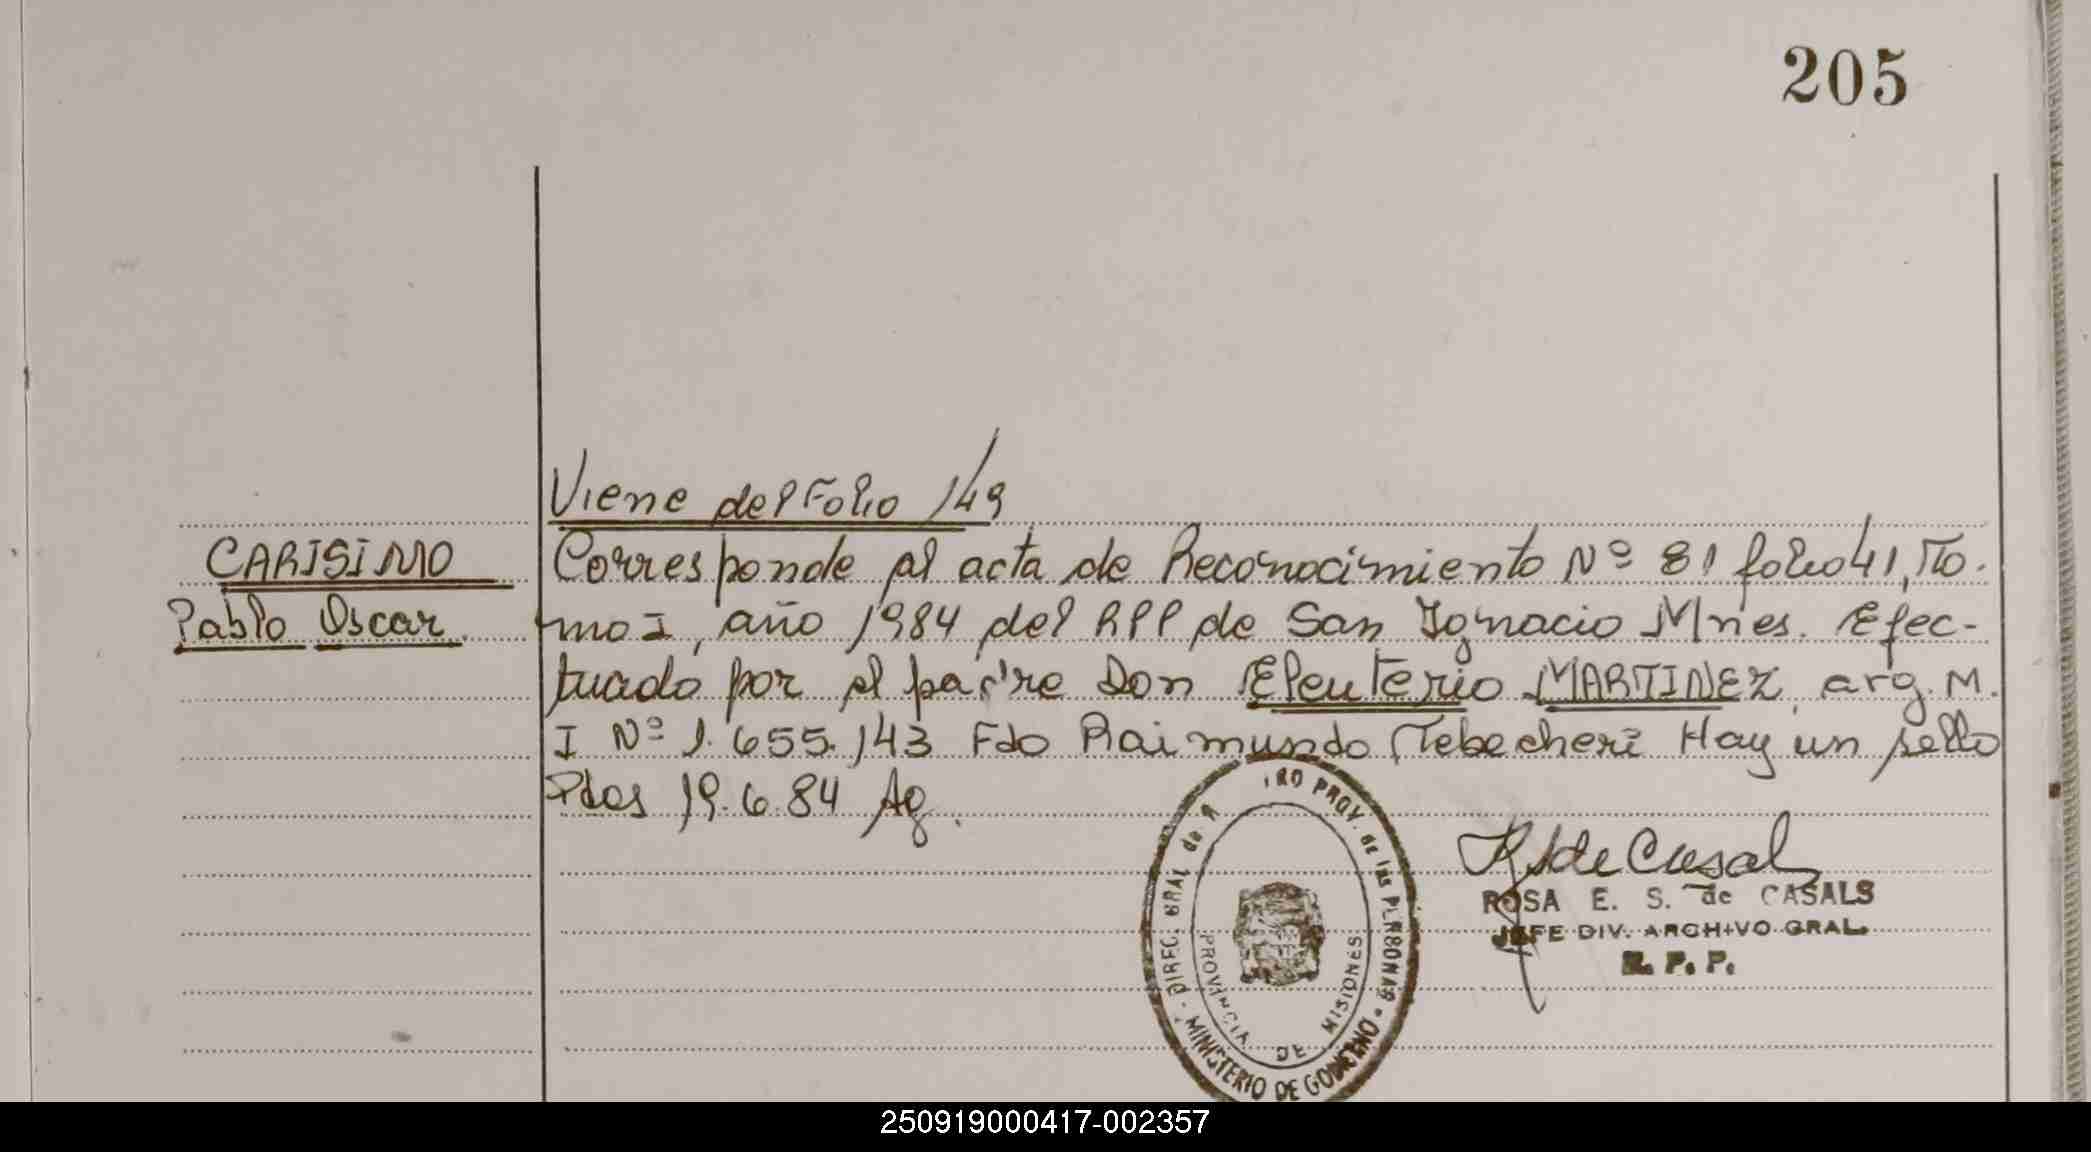 205
Viene del Folio 149
CARISIMO
Pablo Oscar.
Corresponde al acta de Reconocimiento Nº 81 folio 41, To-
mo I, año 1984 del RPP de San Ignacio Mnes. Efec-
tuado por el padre Don Eleuterio MARTINEZ, arg. M.
I Nº 1.655.143 Fdo Raimundo Tebecheri Hay un sello
Pdas 19.6.84 Ag.
DIREC. GRAL de PROV. de las PERSONAS
MINISTERIO DE GOBIERNO
PROVINCIA DE MISIONES
R S de Casal
ROSA E. S. de CASALS
JEFE DIV. ARCHIVO GRAL.
R. P. P.
250919000417-002357